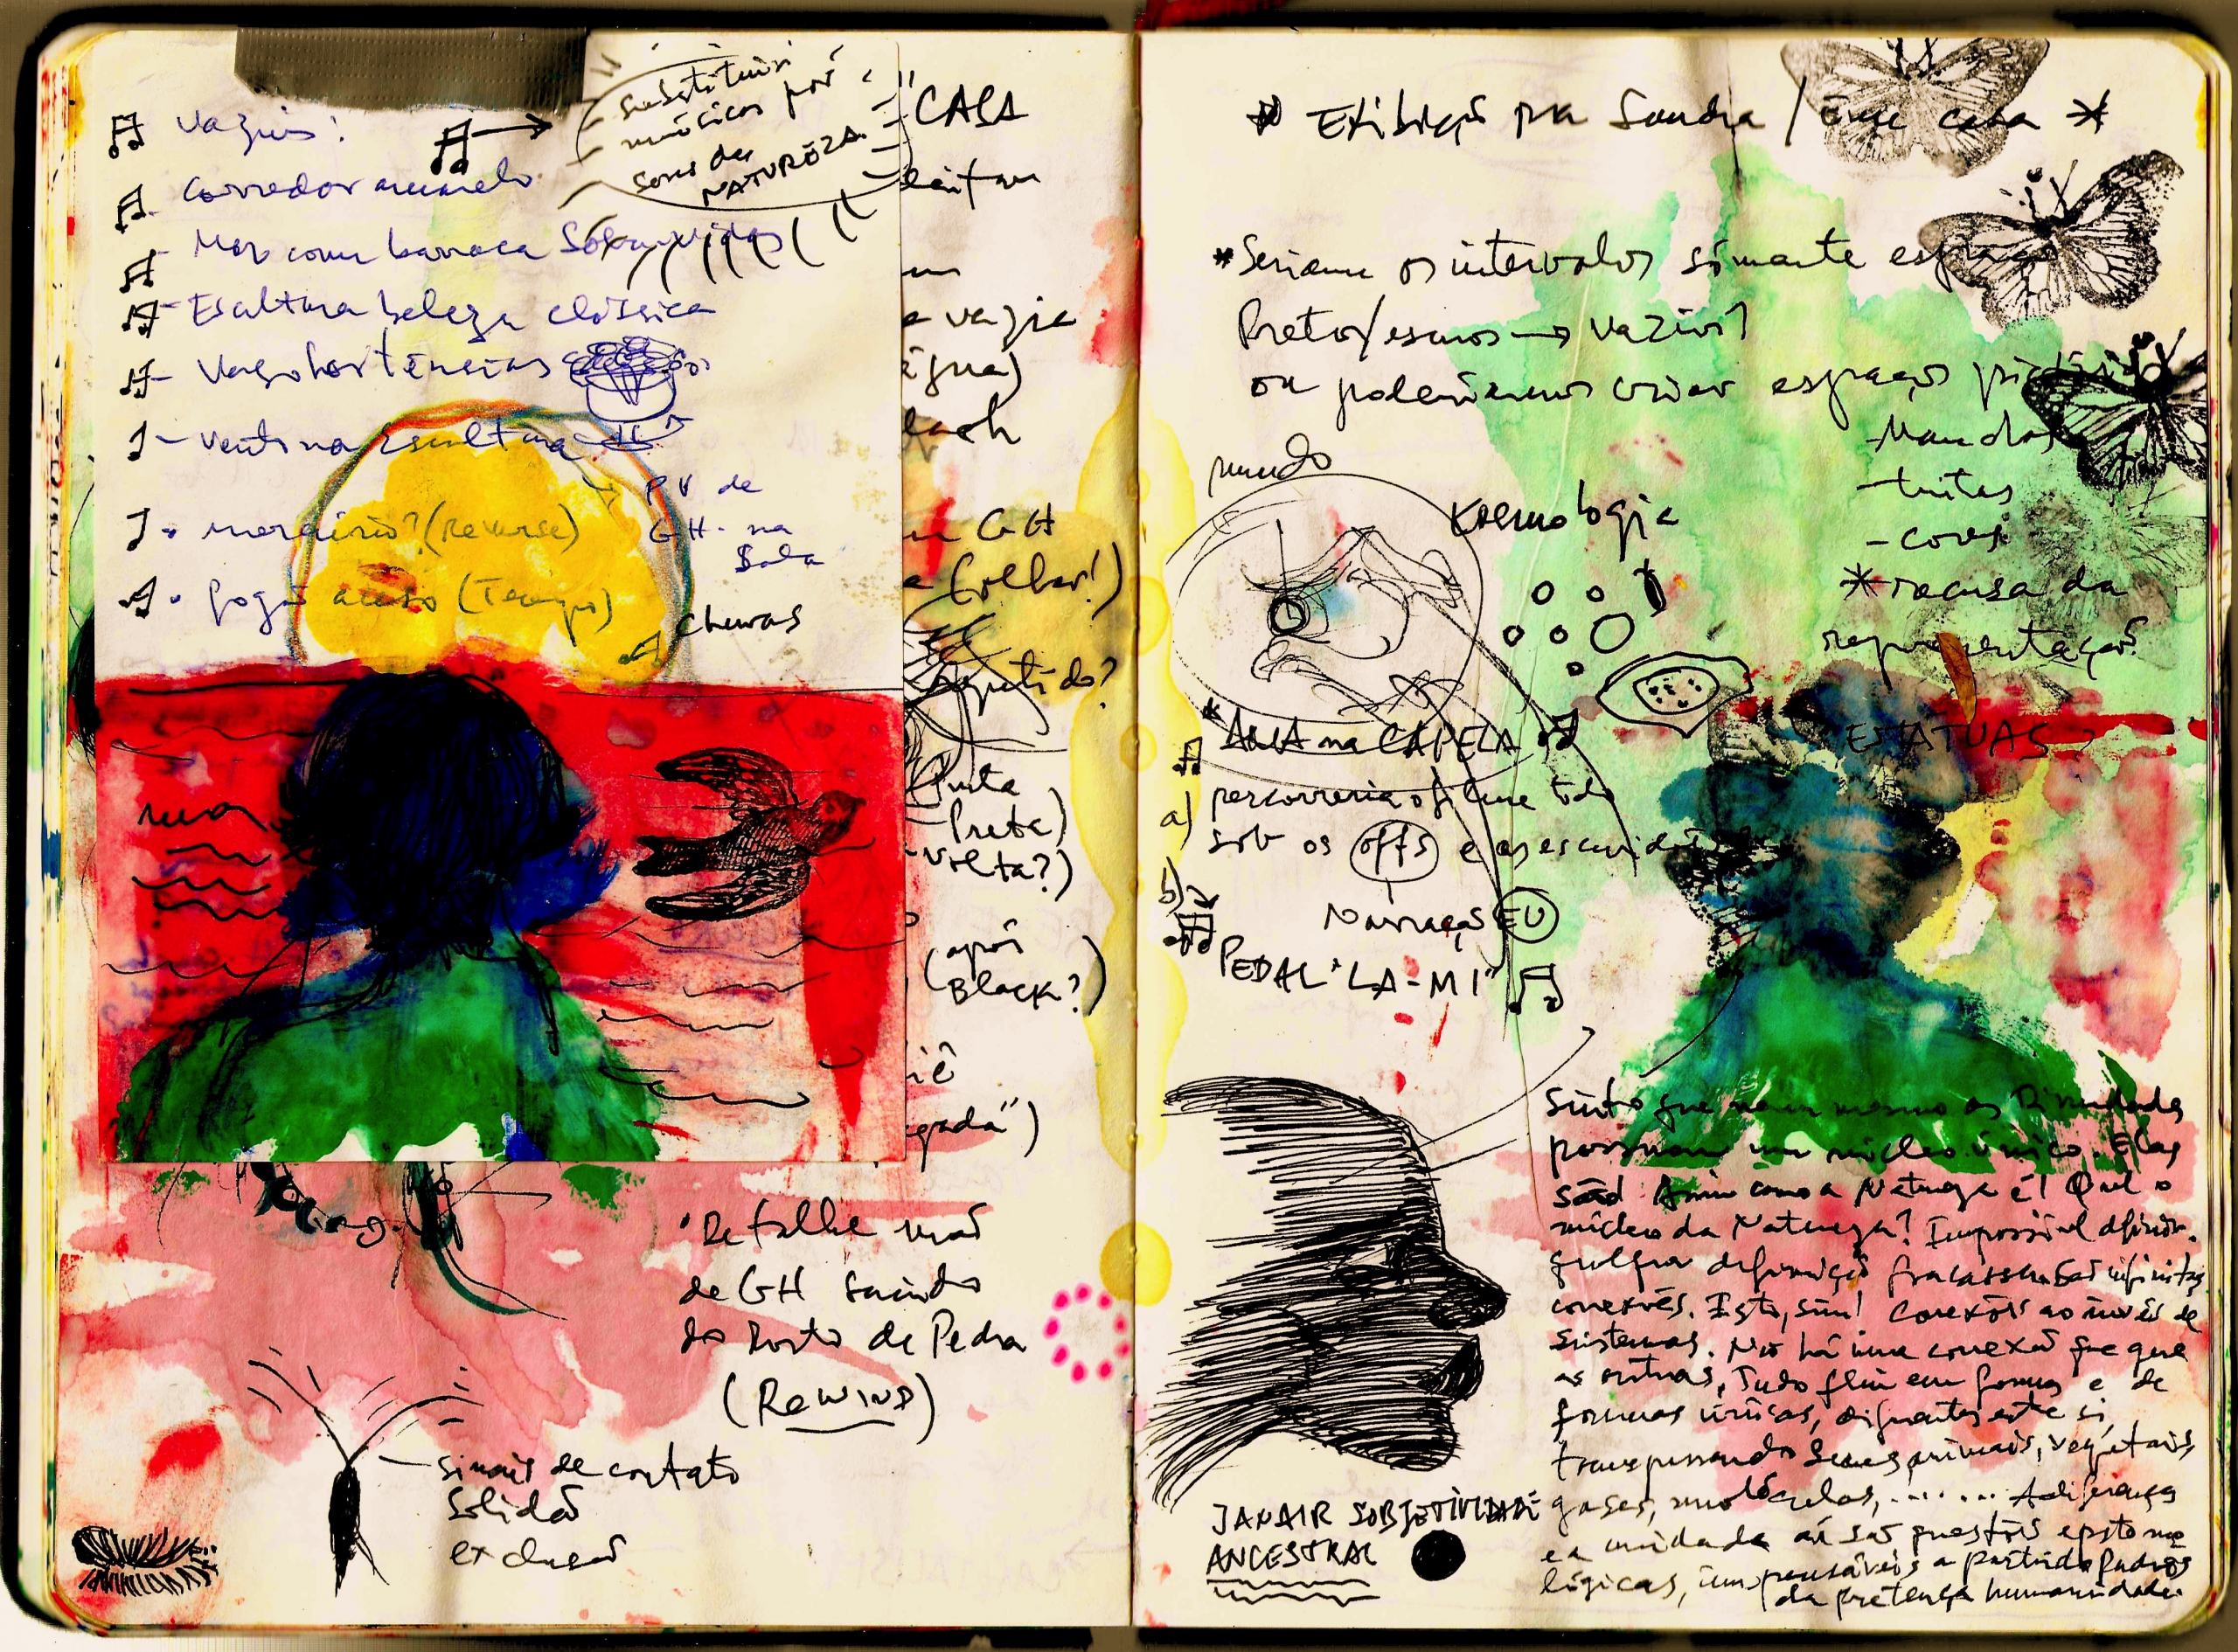 Vazios:
substituir
músicas por
sons da
NATUREZA
Corredor amarelo
Mar com barraca
Escultura beleza clássica
Vaso hortências
Vento na escultura
PV de
GH na
Sala
(Reverse)
fogo aceso (Tempo)
chuvas
"CASA
vazia
GH
(olhar!)
repetido?
Preta)
volta?)
(após
Black?)
Detalhe mão
de GH saindo
do Rosto de Pedra
(REWIND)
sinais de contato
solidão
exclusão
Exibição pra Sandra / Em casa
*Seriam os intervalos somente espaços
Pretos/escuros → vazios?
ou poderíamos criar espaços
- Manchas
- tintas
- cores
* recusa da
representação?
ESTÁTUAS?
mundo
Kosmologia
* ÁRIA na CAPELA
a) percorreria o filme todo
sob os offs e as escuridões
Narração EU
b)
PEDAL "LA-MI"
JANAIR SUBJETIVIDADE
ANCESTRAL
Sinto que nem mesmo as Divindades
possuam um núcleo único. Elas
são! Assim como a Natureza é! Qual o
núcleo da Natureza? Impossível definir.
qulquer definição fracassa. São infinitas
conexões. Isto, sim! Conexões ao invés de
sistemas. Não há uma conexão que
as outras, Tudo flui em formas e de
formas únicas, diferentes entre si,
transpassando Seres animais, vegetais,
gases, moléculas, ........ A diferença
e a unidade aí são questões epistemo
lógicas, impensáveis a partir de padrões
da pretensa humanidade.